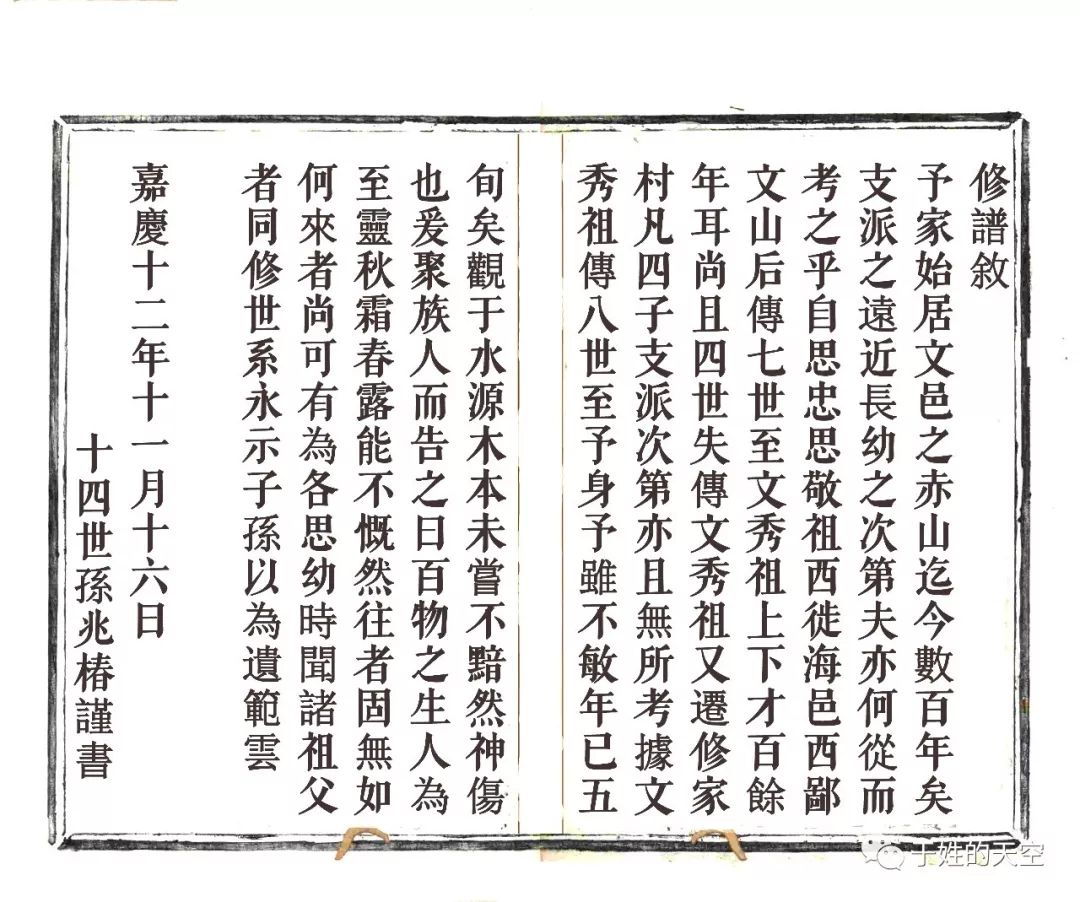 修譜敘
予家始居文邑之赤山迄今數百年矣
支派之遠近長幼之次第夫亦何從而
考之乎自思忠思敬祖西徙海邑西鄙
文山后傳七世至文秀祖上下才百餘
年耳尚且四世失傳文秀祖又遷修家
村凡四子支派次第亦且無所考據文
秀祖傳八世至予身予雖不敏年已五
旬矣觀于水源木本未嘗不黯然神傷
也爰聚族人而告之曰百物之生人為
至靈秋霜春露能不慨然往者固無如
何來者尚可有為各思幼時聞諸祖父
者同修世系永示子孫以為遺範雲
嘉慶十二年十一月十六日
十四世孫兆椿謹書
于姓的天空